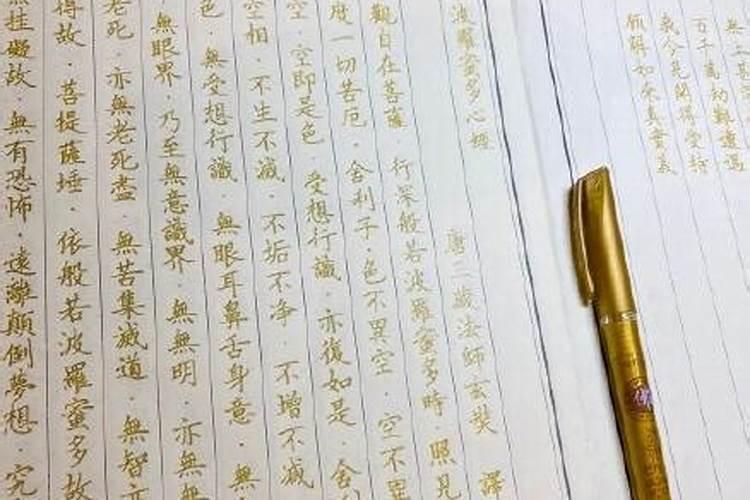 無上甚
百千萬劫難遭遇
我今見聞得受持
願解如來真實義
波羅蜜多心經 唐三藏法師玄奘 譯
觀自在菩薩·行深般若波羅蜜多時·照見
度一切苦厄·舍利子·色不異空·空不異
空·空即是色·受想行識·亦復如是·舍
空相·不生不滅·不垢不净·不增不減
色·無受想行識·無眼耳鼻舌身意·無
無眼界·乃至無意識界·無無明·亦無無
老死·亦無老死盡·無苦集滅道·無智亦
得故·菩提薩埵·依般若波羅蜜多故
無挂礙故·無有恐怖·遠離顛倒夢想·究